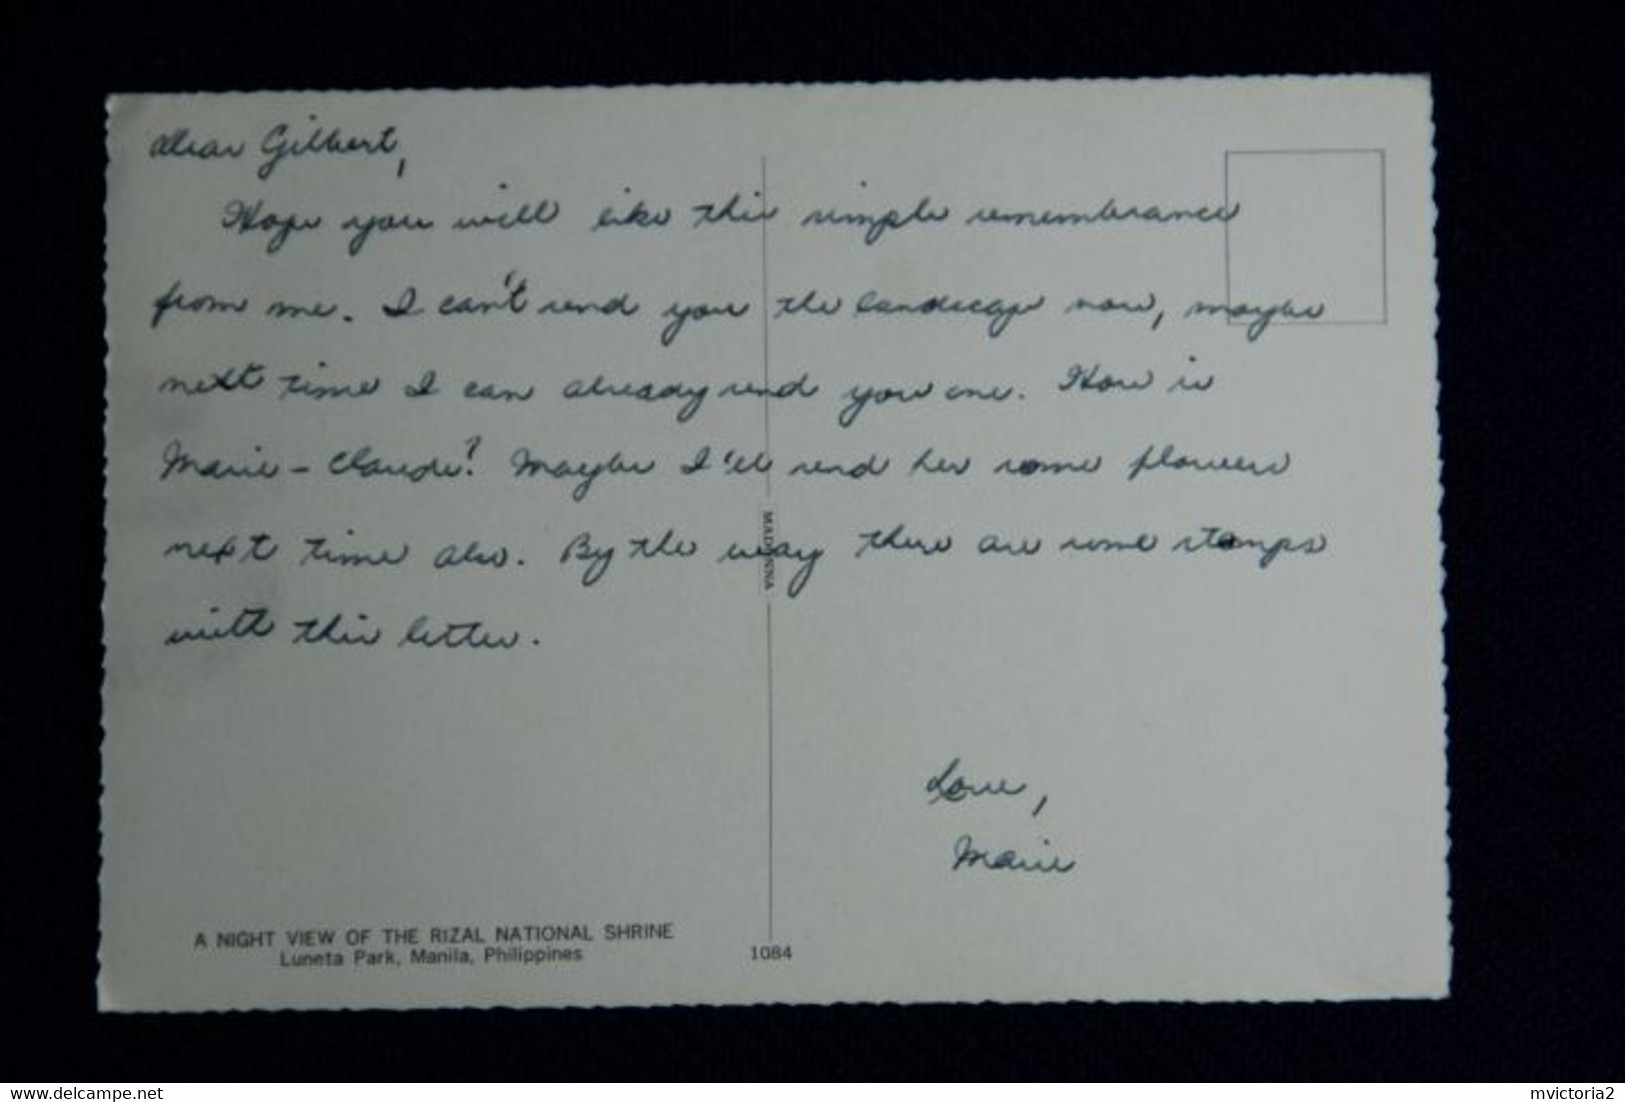 Dear Gilbert,
Hope you will like this simple remembrance
from me. I can't send you the landscape now, maybe
next time I can already send you one. How is
Marie-Claude? Maybe I'll send her some flowers
next time also. By the way there are some stamps
with this letter.
Love,
Marie
MADONNA
A NIGHT VIEW OF THE RIZAL NATIONAL SHRINE
Luneta Park, Manila, Philippines
1084
delcampe.net
mvictoria2